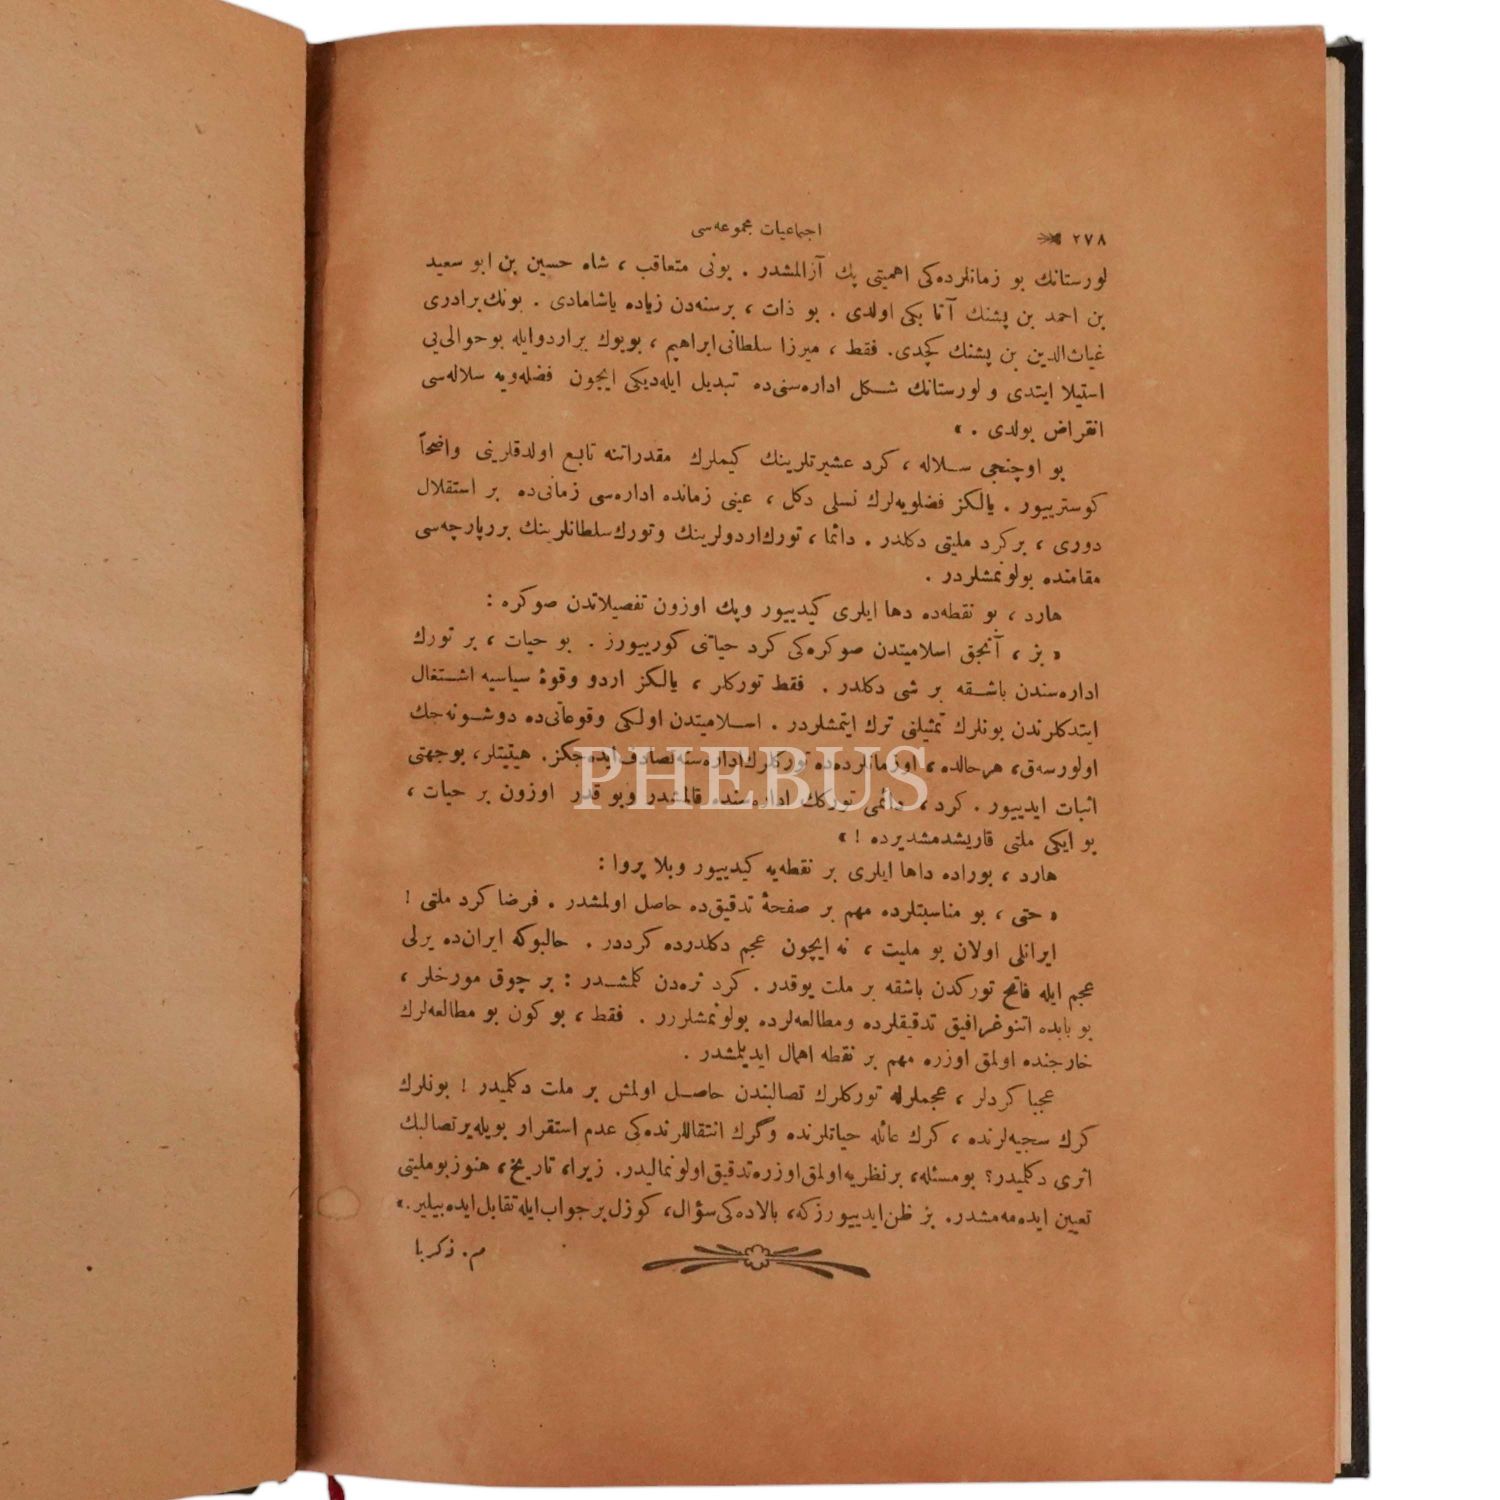 ٢٧٨ اجتماعيات مجموعه‌سى
لورستانك بو زمانلرده‌كى اهميتى پك آزالمشدر . بونى متعاقب ، شاه حسين بن ابو سعيد
بن احمد بن پشنك آتا بكى اولدى . بو ذات ، برسنه‌دن زياده ياشامادى . بونك برادرى
غياث‌الدين بن پشنك كچدى. فقط ، ميرزا سلطانى ابراهيم ، بويوك براردوايله بوحوالى‌يى
استيلا ايتدى و لورستانك شكل اداره‌سنى‌ده تبديل ايله‌ديكى ايچون فضله‌ويه سلاله‌سى
انقراض بولدى . »
بو اوچنجى سلاله ، كرد عشيرتلرينك كيملرك مقدراتنه تابع اولدقلرينى واضحاً
كوسترييور . يالكز فضلويه‌لرك نسلى دكل ، عينى زمانده اداره‌سى زمانى‌ده بر استقلال
دورى ، بركرد مليتى دكلدر . دائما ، تورك‌اردولرينك وتورك‌سلطانلرينك بررپارچه‌سى
مقامنده بولونمشلردر .
هارد ، بو نقطه‌ده دها ايلرى كيدييور وپك اوزون تفصيلاتدن صوكره :
« بز ، آنجق اسلاميتدن صوكره‌كى كرد حياتنى كورييورز . بو حيات ، بر تورك
اداره‌سندن باشقه بر شى دكلدر . فقط توركلر ، يالكز اردو وقوۀ سياسيه اشتغال
ايتدكلرندن بونلرك تمثيلنى ترك ايتمشلردر . اسلاميتدن اولكى وقوعاتى‌ده دوشونه‌جك
اولورسه‌ق، هرحالده، اوزمانلرده‌ده توركلرك‌اداره‌سنه‌تصادف‌ايده‌جكز. هيتيتلر، بوجهتى
اثبات ايدييور . كرد ، دائمى توركك اداره‌سنده قالمشدر وبو قدر اوزون بر حيات ،
بو ايكى ملتى قاريشدمشديرده ! »
هارد ، بوراده داها ايلرى بر نقطه‌يه كيدييور وبلا پروا :
« حتى ، بو مناسبتلرده مهم بر صفحۀ تدقيق‌ده حاصل اولمشدر . فرضا كرد ملتى !
ايرانلى اولان بو مليت ، نه ايچون عجم دكلدرده كرددر . حالبوكه ايران‌ده يرلى
عجم ايله فاتح توركدن باشقه بر ملت يوقدر . كرد نره‌دن كلمشدر : بر چوق مورخلر ،
بو بابده اتنوغرافيق تدقيقلرده ومطالعه‌لرده بولونمشلررر . فقط ، بو كون بو مطالعه‌لرك
خارجنده اولمق اوزره مهم بر نقطه اهمال ايديلمشدر .
عجبا كردلر ، عجملرله توركلرك تصالبندن حاصل اولمش بر ملت دكلميدر ! بونلرك
كرك سجيه‌لرنده ، كرك عائله حياتلرنده وگرك انتقاللرنده‌كى عدم استقرار بويله‌برتصالبك
اثرى دكلميدر؟ بومسئله، برنظريه‌اولمق‌اوزره‌تدقيق‌اولونماليدر. زيرا، تاريخ، هنوزبومليتى
تعيين ايده‌مه‌مشدر. بز ظن‌ايدييورزكه، بالاده‌كى‌سؤال، كوزل‌برجواب‌ايله‌تقابل‌ايده‌بيلير.»
م. ذكريا
PHEBUS